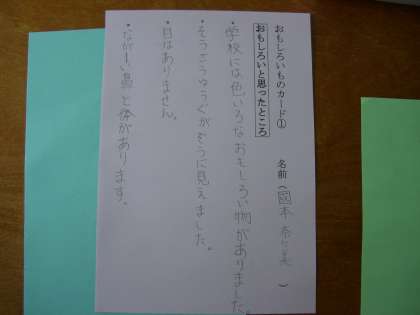 おもしろいものカード①
名前（國本 ）
おもしろいと思ったところ
・学校には色いろなおもしろい物がありました。
・そうさくゆうぐがぞうに見えました。
・目はありません。
・ながーい鼻と体があります。